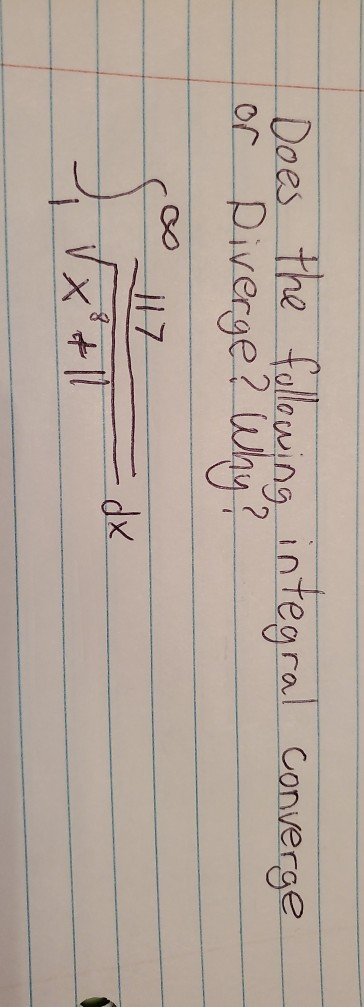 Does the following integral converge
or Diverge? Why?
∫₁^∞ 117/√(x⁸+11) dx